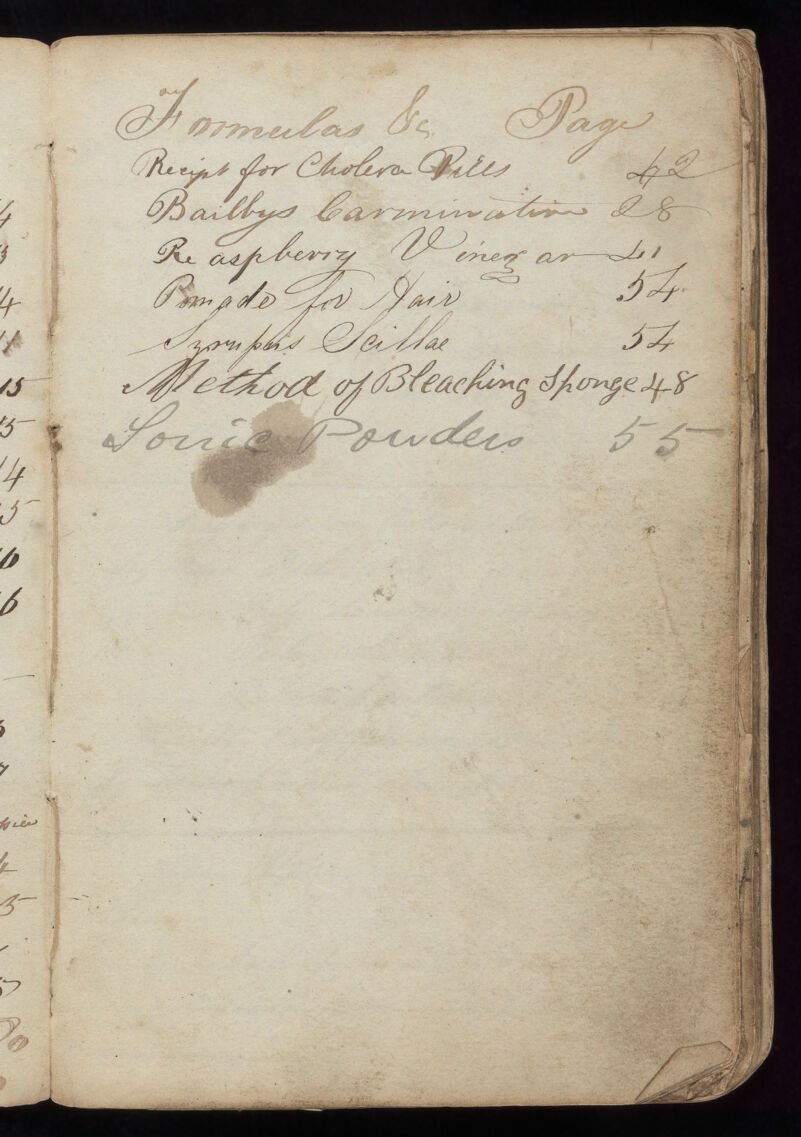 Formulas &c Page
Recipt for Cholera Pills 42
Bailbys Carminative 28
Reaspberry Vinegar 41
Pomade for Hair 54
Syrupus Scillae 54
Method of Bleaching Sponge 48
Sonic Powders 55
4
3
4
15
5
14
5
6
4
5